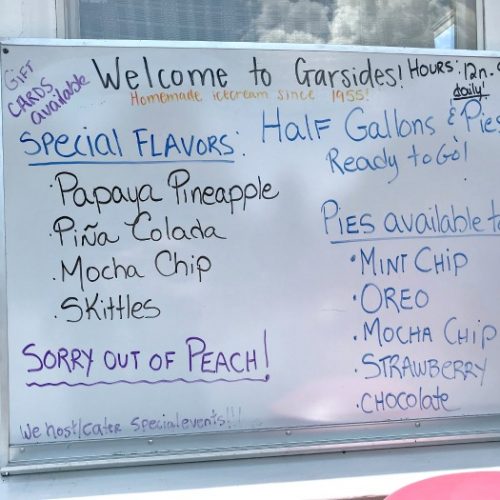 GIFT
CARDS
available
Welcome to Garsides!
Homemade icecream since 1955!
HOURS: 12n.
daily!
SPECIAL FLAVORS:
• Papaya Pineapple
• Piña Colada
• Mocha Chip
• Skittles
SORRY OUT OF PEACH!
We host/cater special events!!!
HALF GALLONS & Pies
Ready to Go!
PIES available
• MINT CHIP
• OREO
• MOCHA CHIP
• STRAWBERRY
• CHOCOLATE